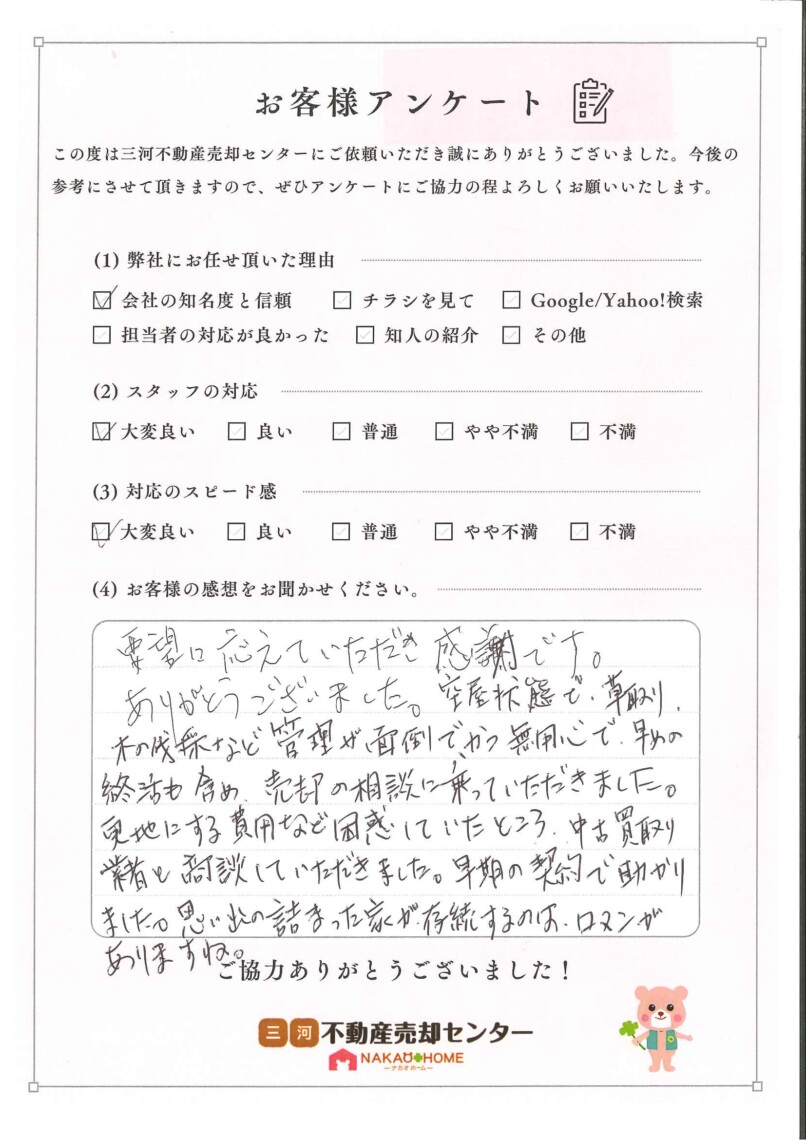 お客様アンケート
この度は三河不動産売却センターにご依頼いただき誠にありがとうございました。今後の
参考にさせて頂きますので、ぜひアンケートにご協力の程よろしくお願いいたします。
(1) 弊社にお任せ頂いた理由
会社の知名度と信頼 チラシを見て Google/Yahoo!検索
担当者の対応が良かった 知人の紹介 その他
(2) スタッフの対応
大変良い 良い 普通 やや不満 不満
(3) 対応のスピード感
大変良い 良い 普通 やや不満 不満
(4) お客様の感想をお聞かせください。
要望に応えていただき感謝です。
ありがとうございました。空屋状態で、草取り、
木の伐採など管理が面倒でかつ無用心で、早めの
終活も含め、売却の相談に乗っていただきました。
更地にする費用など困惑していたところ、中古買取り
業者と商談していただきました。早期の契約で助かり
ました。思い出の詰まった家が、存続するのは、ロマンが
ありますね。
ご協力ありがとうございました！
三河不動産売却センター
NAKAO HOME
ーナカオホームー